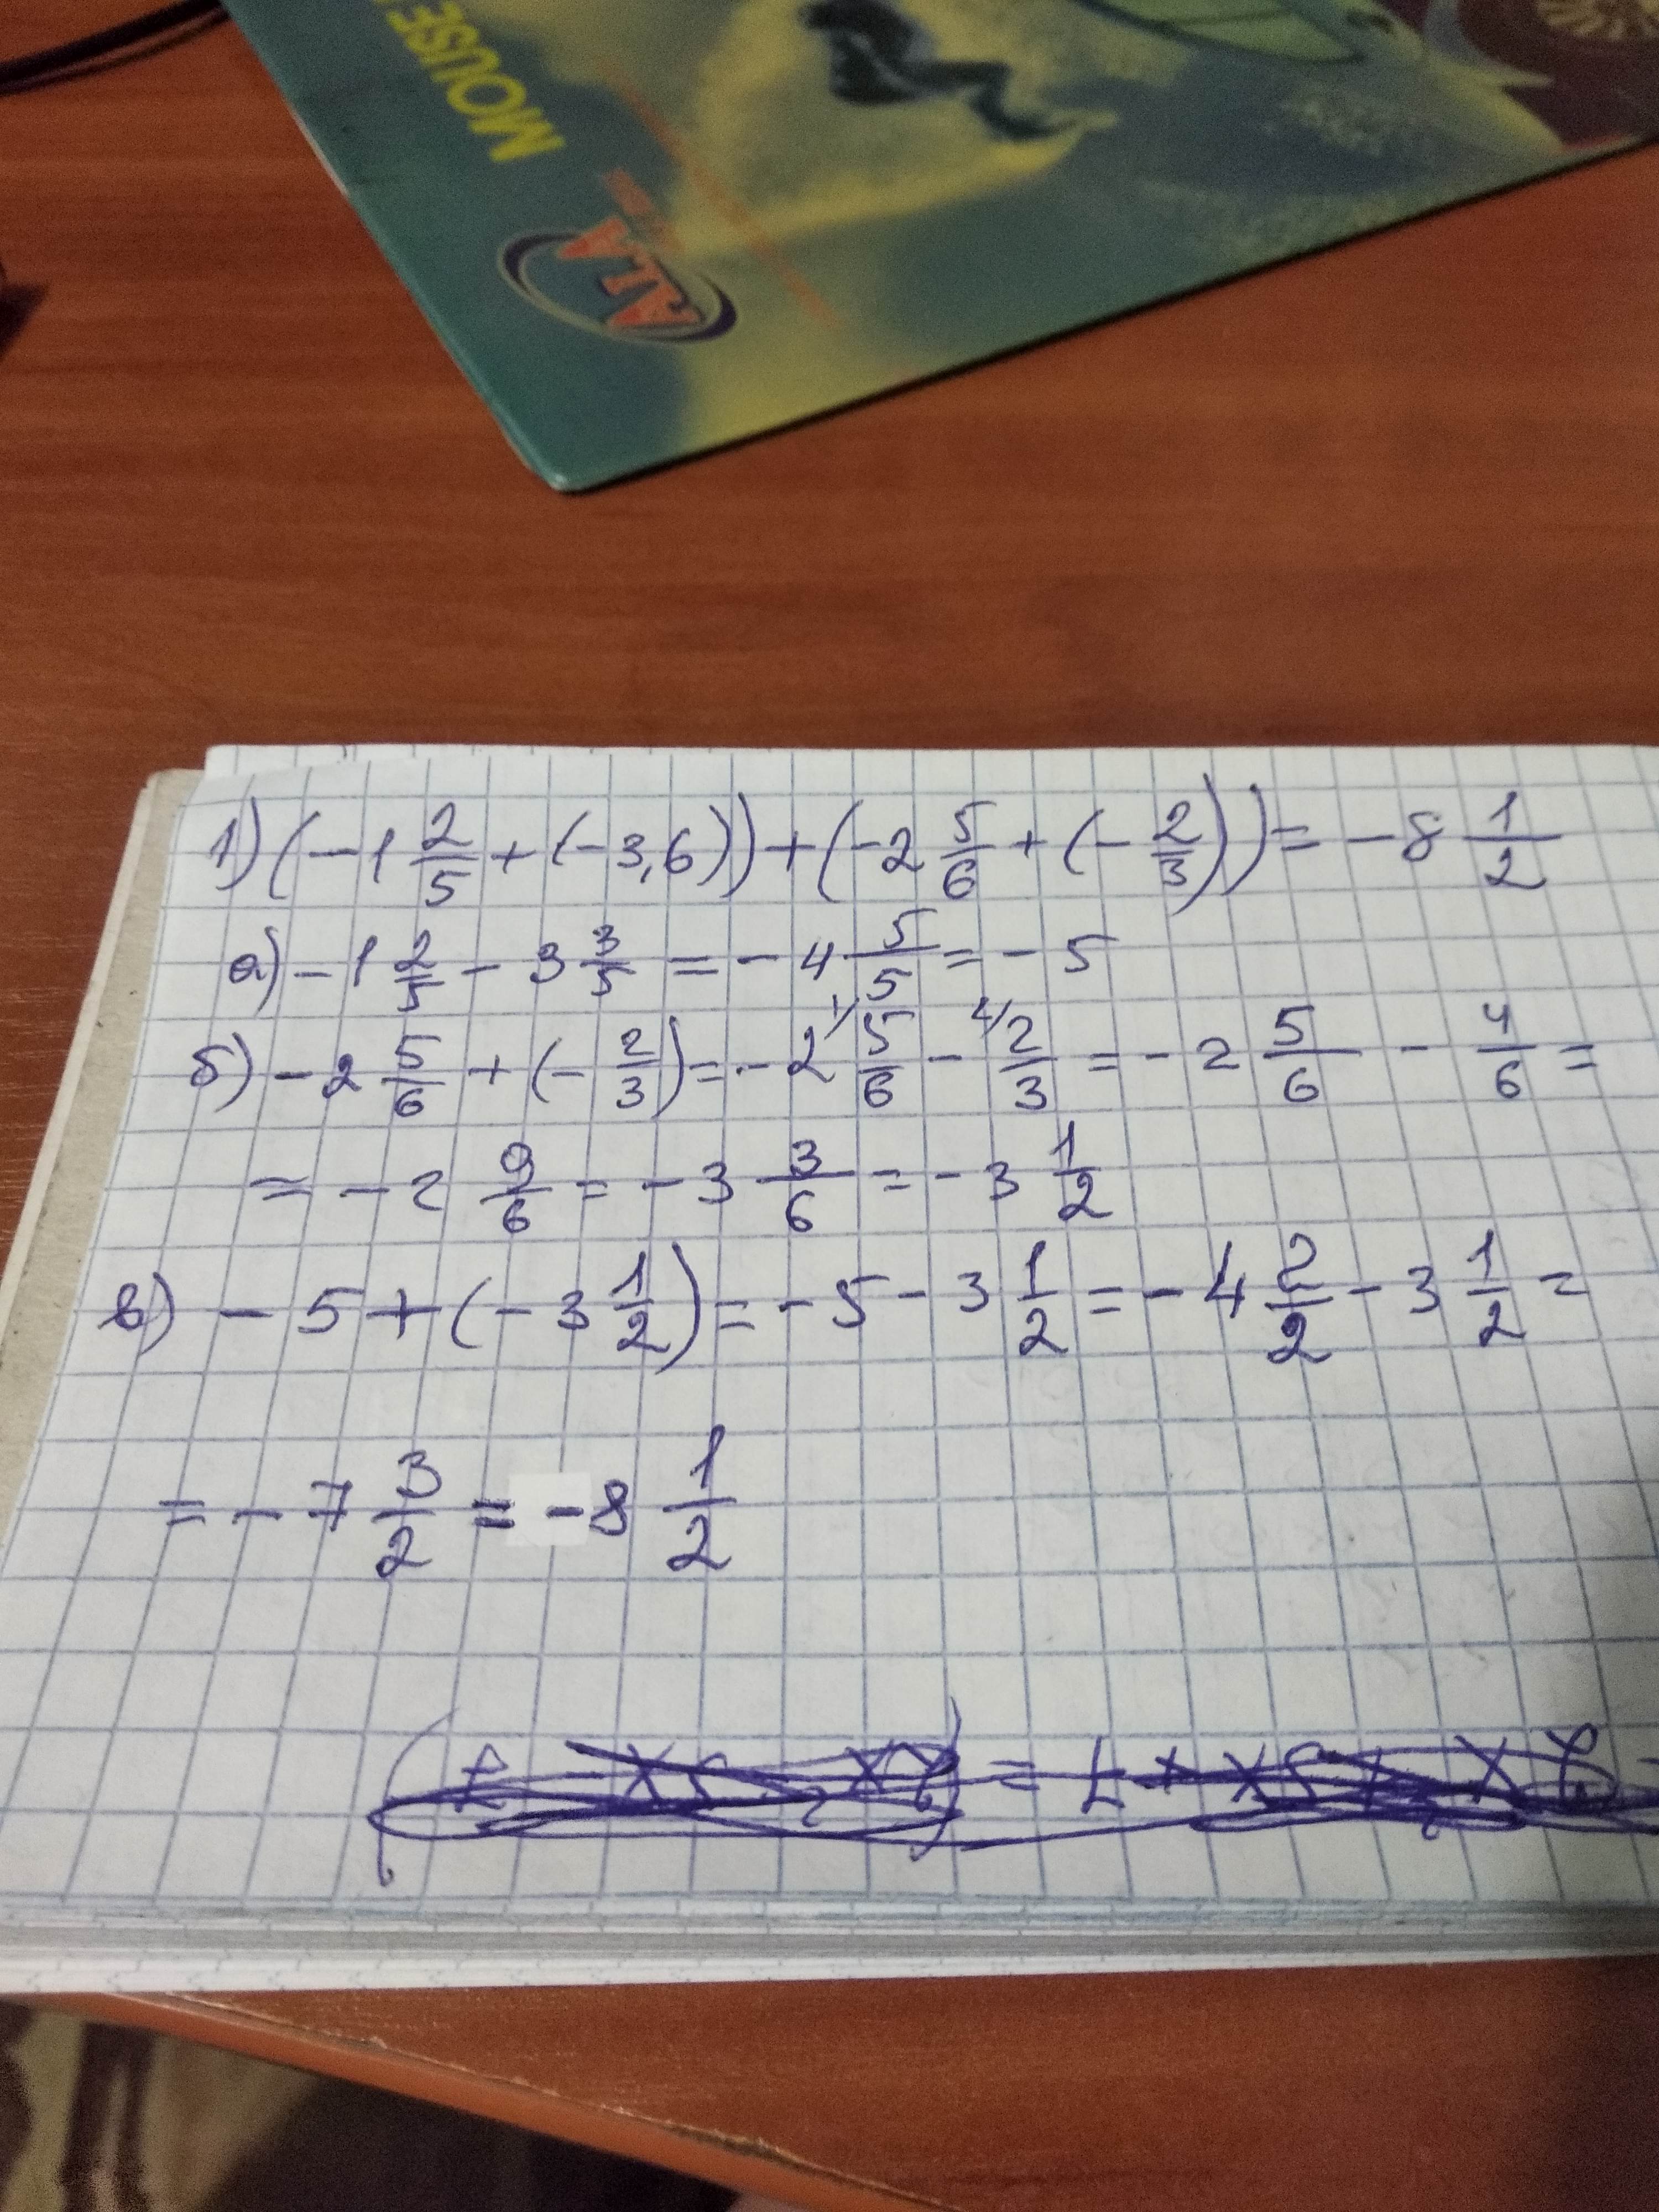 MOUSE
ALA
1) (-1 2/5 + (-3,6)) + (-2 5/6 + (-2/3)) = -8 1/2
а) -1 2/5 - 3 3/5 = -4 5/5 = -5
б) -2 5/6 + (-2/3) = -2 5/6 - 2/3 = -2 5/6 - 4/6 =
= -2 9/6 = -3 3/6 = -3 1/2
в) -5 + (-3 1/2) = -5 - 3 1/2 = -4 2/2 - 3 1/2 =
= -7 3/2 = -8 1/2